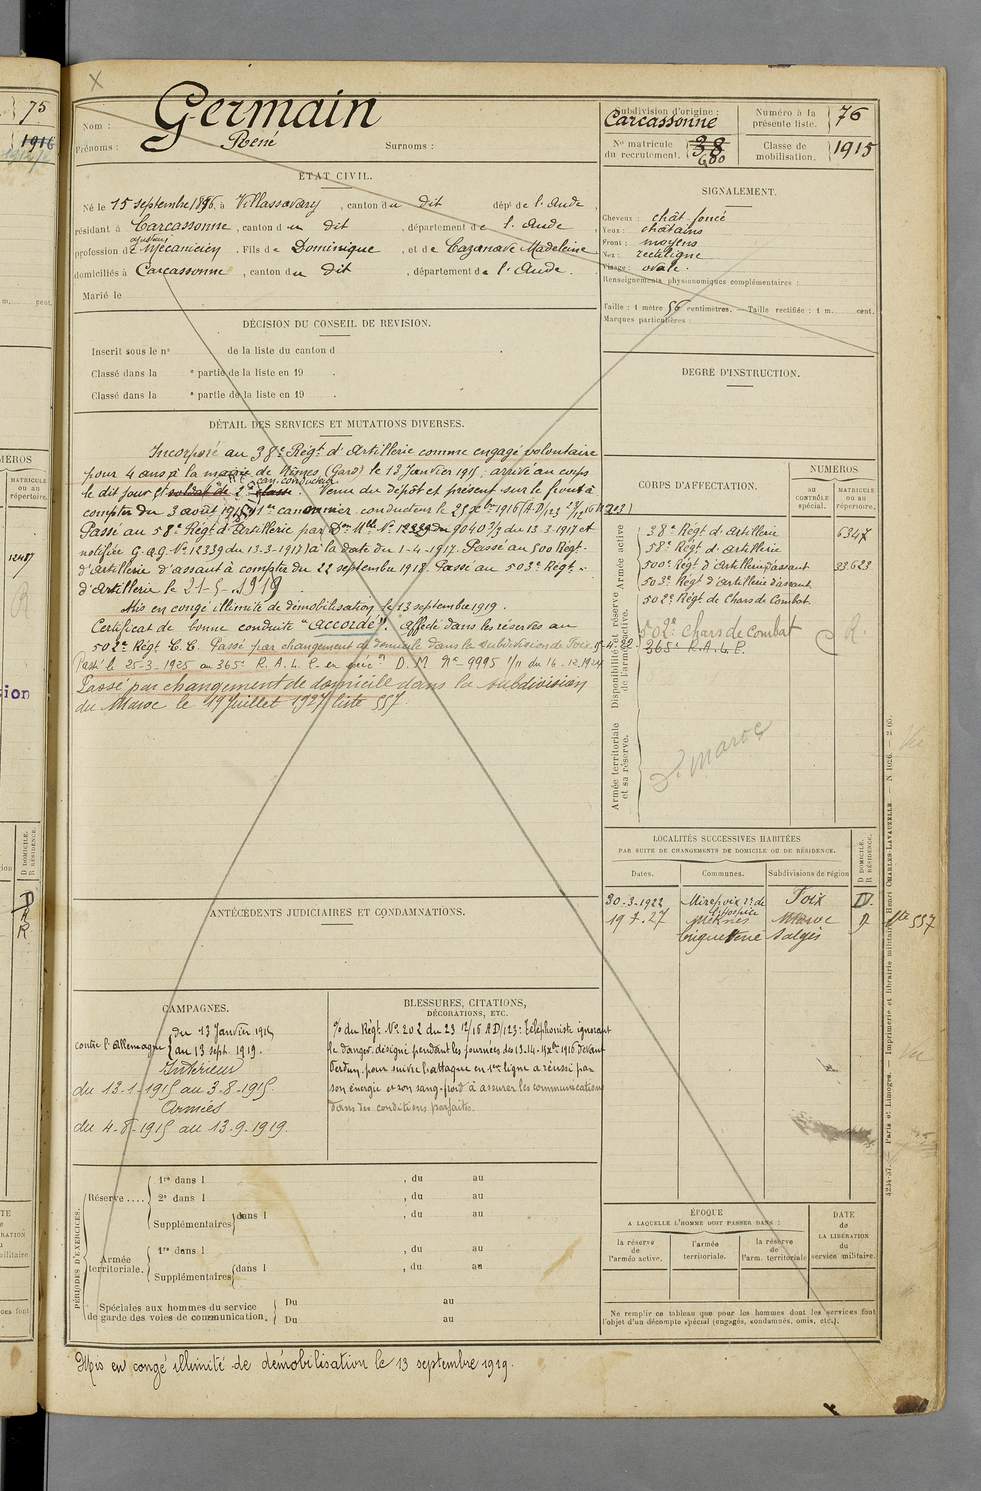 75
1916
Nom : Germain
Prénoms : René Surnoms :
Subdivision d'origine : Carcassonne
Numéro à la présente liste. 76
N° matricule du recrutement. 38 680
Classe de mobilisation. 1915
ÉTAT CIVIL.
Né le 15 septembre 1896, à Villasavary, canton du dit, dépt de l'Aude,
résidant à Carcassonne, canton du dit, département de l'Aude,
profession de ajusteur mécanicien. Fils de Dominique, et de Cazanave Madeleine
domiciliés à Carcassonne, canton du dit, département de l'Aude.
Marié le
SIGNALEMENT.
Cheveux : chât. foncé
Yeux : châtains
Front : moyens
Nez : rectiligne
Visage : ovale.
Renseignements physionomiques complémentaires :
Taille : 1 mètre 56 centimètres. — Taille rectifiée : 1 m. cent.
Marques particulières :
DÉCISION DU CONSEIL DE REVISION.
Inscrit sous le n° de la liste du canton d
Classé dans la e partie de la liste en 19 .
Classé dans la e partie de la liste en 19 .
DEGRÉ D'INSTRUCTION.
DÉTAIL DES SERVICES ET MUTATIONS DIVERSES.
Incorporé au 38e Régt d'Artillerie comme engagé volontaire
pour 4 ans à la mairie de Nîmes (Gard) le 13 Janvier 1915, arrivé au corps
le dit jour et soldat de 2e classe. can. conducteur Venu du dépôt et présent sur le front à
compter du 3 août 1915 1er canonnier conducteur le 25 Xbre 1916 (A.D/123
Passé au 58e Régt d'Artillerie par Don Mlle N° 12339 du 9040 3/3 du 13.3.1917 et
notifiée G.Q.G. N° 12339 du 13.3.1917) à la date du 1-4-1917. Passé au 500 Régt.
d'Artillerie d'assaut à compter du 22 septembre 1918. Passé au 503e Régt.
d'Artillerie le 21-5-1919.
Mis en congé illimité de démobilisation le 13 septembre 1919.
Certificat de bonne conduite "accordé". Affecté dans les réserves au
502e Régt C. C. Passé par changement de domicile dans la subdivision de Foix.
Passé le 25-3-1925 au 365e R.A.L.P. en exécn D.M. N° 9995 1/11 du 16-12.1924
Passé par changement de domicile dans la subdivision
du Maroc le 19 Juillet 1927 liste 557.
CORPS D'AFFECTATION.
NUMÉROS
au CONTRÔLE spécial.
MATRICULE ou au répertoire.
Armée active
38e Régt d'Artillerie 6347
58e Régt d'Artillerie
500e Régt d'Artillerie d'assaut 33623
503e Régt d'Artillerie d'assaut
502e Régt de Chars de Combat.
Disponibilité et réserve de l'armée active.
502e chars de combat
365e R.A.L.P.
Armée territoriale et sa réserve.
Maroc
LOCALITÉS SUCCESSIVES HABITÉES
PAR SUITE DE CHANGEMENTS DE DOMICILE OU DE RÉSIDENCE.
Dates. Communes. Subdivisions de région
D DOMICILE. R RÉSIDENCE.
30-3-1922 Mirepoix r. de l'Hospice Foix D.
19.7.27 Meknès Maroc D liste 557
ANTÉCÉDENTS JUDICIAIRES ET CONDAMNATIONS.
CAMPAGNES.
contre l'Allemagne du 13 Janvier 1915
au 13 sept. 1919.
Intérieur
du 13-1-1915 au 3-8-1915.
Armées
du 4-8-1915 au 13.9.1919.
BLESSURES, CITATIONS,
DÉCORATIONS, ETC.
% du Régt. N° 202 du 23 12/16 AD/123: Téléphoniste ignorant
le danger, désigné pendant les journées des 13.14.15 Xbre 1916 devant
Verdun, pour suivre l'attaque en 1ère ligne a réussi par
son énergie et son sang-froid à assurer les communications
dans des conditions parfaites.
PÉRIODES D'EXERCICES.
Réserve .... 1re dans l , du au
2e dans l , du au
Supplémentaires dans l , du au
Armée territoriale. 1re dans l , du au
Supplémentaires dans l , du au
Spéciales aux hommes du service de garde des voies de communication. Du au
Du au
ÉPOQUE
A LAQUELLE L'HOMME DOIT PASSER DANS :
la réserve de l'armée active.
l'armée territoriale.
la réserve de l'arm. territoriale.
DATE de LA LIBÉRATION du service militaire.
Ne remplir ce tableau que pour les hommes dont les services font
l'objet d'un décompte spécial (engagés, condamnés, omis, etc.).
Mis en congé illimité de démobilisation le 13 septembre 1919.
4234-37. — Paris et Limoges. — Imprimerie et librairie militaires Henri CHARLES-LAVAUZELLE. — N 1026. — 2-05.